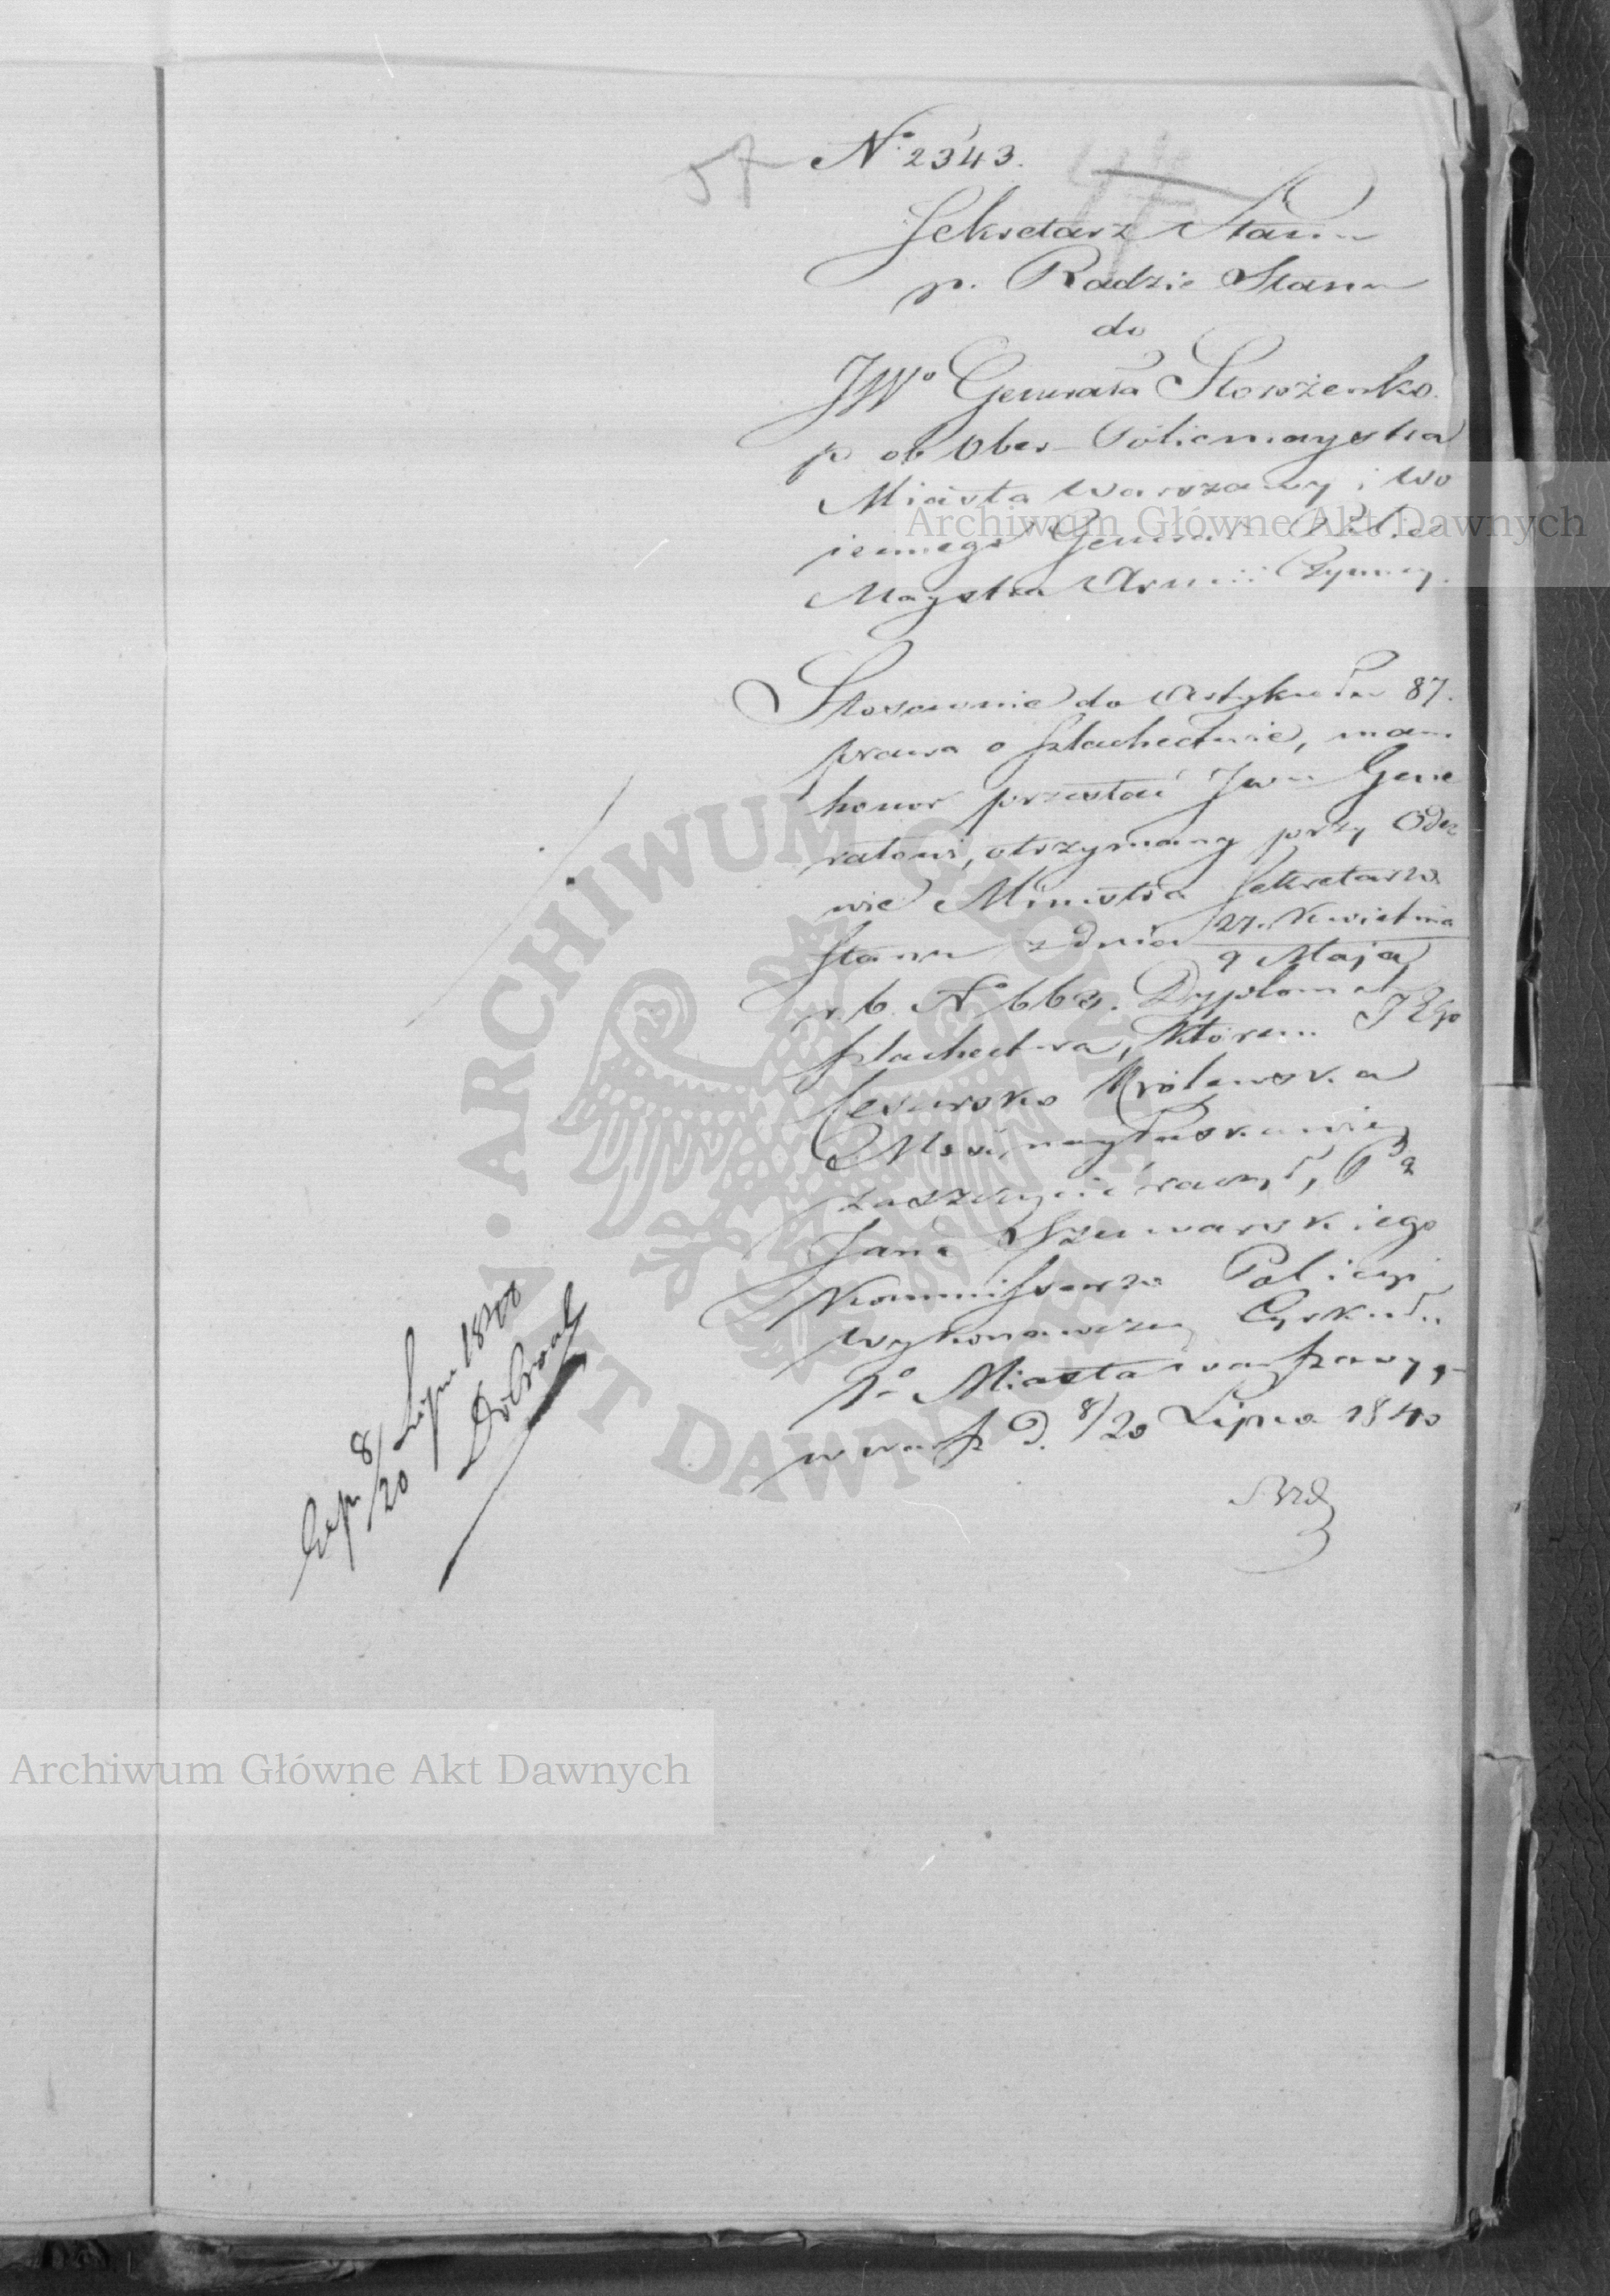 57 No 2343.
44
Sekretarz Stanu
p. Radzie Stanu
do
JWo Generała Storożenko.
p. ob Ober-Policmaystra
Miasta Warszawy i Wo
iennego General Policc
Maystra Armii Czynney.
Stosownie do Artykułu 87.
prawa o Szlachectwie, mam
honor przesłać Jwu Gene
rałowi, otrzymany przy Odez
wie Ministra Sekretarza
Stanu z dnia 27. Kwietnia
9 Maja
r. b. No 663. Dyplomat
szlachectwa, którem J Ego
Cesarsko Królewska
Mość, nayłaskawiey
zaszczycić raczył, Pa
Jana Szumarskiego
Kommissarza Policyi
Wykonawczey Cyrkułu
1o Miasta Warszawy,-
w Warsz D. 8/20 Lipca 1840
Exp. 8/20 Lipca 1840
Archiwum Główne Akt Dawnych
ARCHIWUM GŁÓWNE AKT DAWNYCH
Archiwum Główne Akt Dawnych